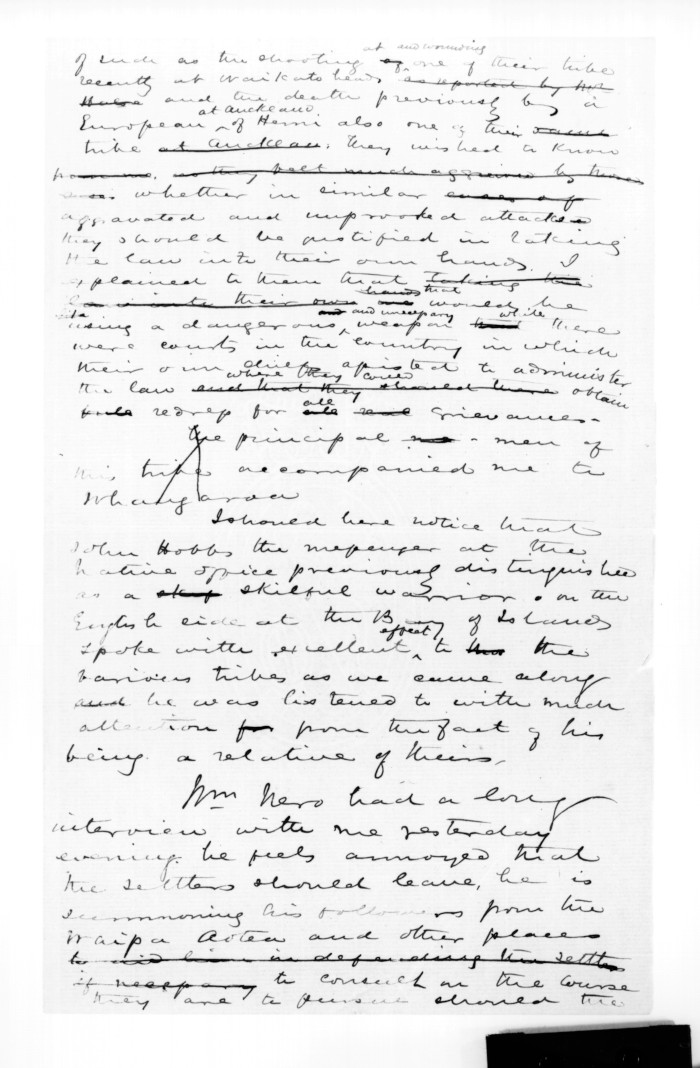 of such as the shooting at and wounding of one of their tribe
recently at Waikato heads as reported by
and the death previously by a
European at Auckland of Hemi also one of their
tribe at Auckland. They wished to know
felt much aggrieved by these
whether in similar cases of
aggravated and unprovoked attacks
they should be justified in taking
the law into their own hands. I
explained to them that taking the
law into their own hands that would be
using a dangerous and unnecessary weapon while there
were courts in the country in which
their own chiefs assisted to administer
the law where they could and that they should there obtain
redress for all real Grievances.
The principal men of
this tribe accompanied me to
Whangaroa
I should here notice that
John Hobbs the messenger at the
Native office previously distinguished
as a skilful warrior on the
English side at the Bay of Islands
spoke with excellent effect to the
various tribes as we came along
and he was listened to with much
attention from the fact of his
being a relative of theirs.
Wm Nero had a long
interview with me yesterday
evening. he feels annoyed that
the settlers should leave, he is
summoning his followers from the
Waipa Aotea and other places
to aid him in defending the settlers
if necessary to consult on the course
they are to pursue should the